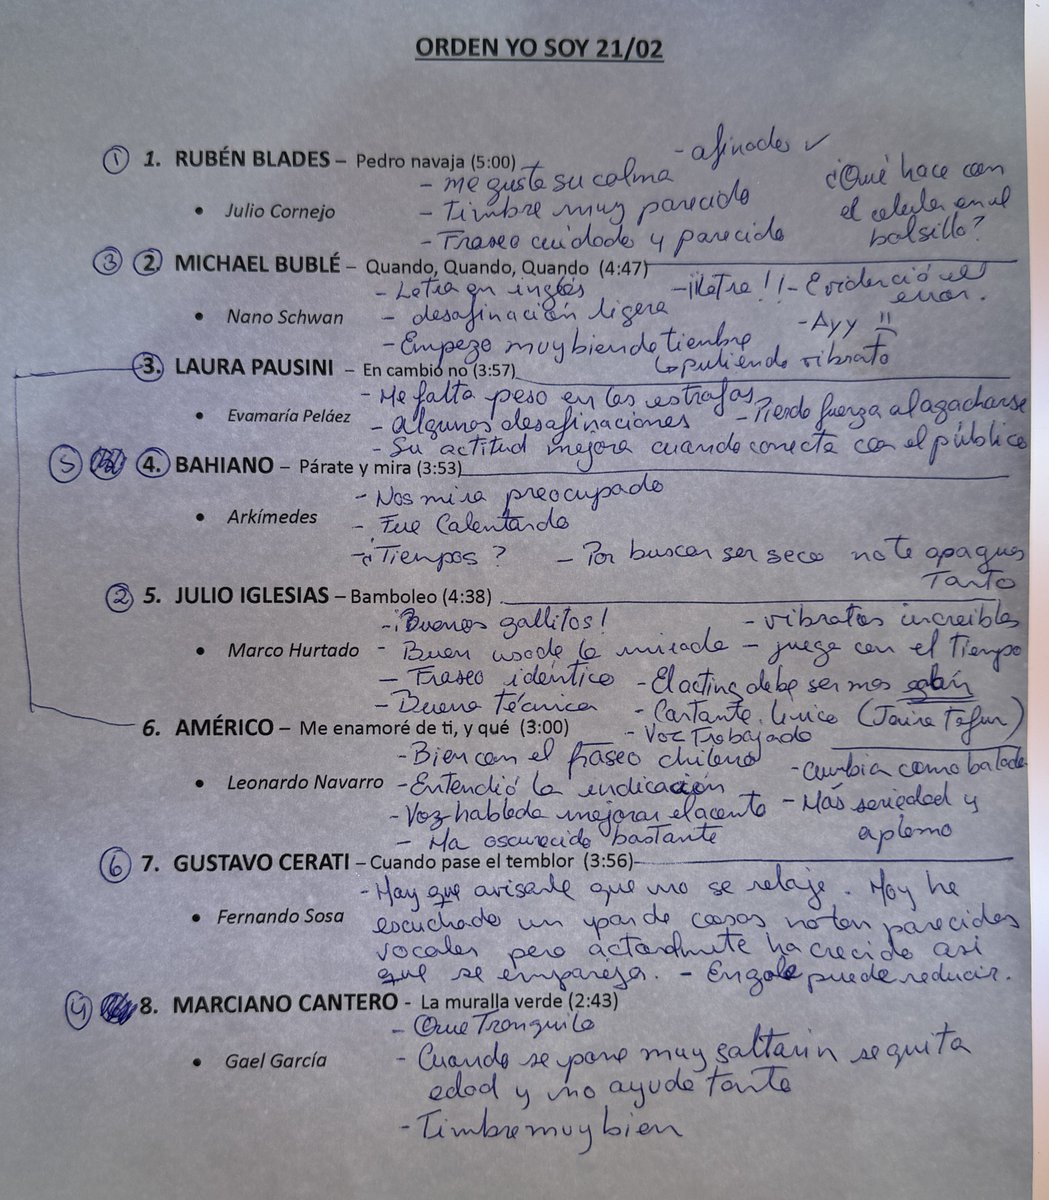 ORDEN YO SOY 21/02
① 1. RUBÉN BLADES – Pedro navaja (5:00)
- afinados ✓
- me gusta su calma
• Julio Cornejo
- Timbre muy parecido
- Fraseo cuidado y parecido
¿Qué hace con
el celular en el
bolsillo?
③ ② 2. MICHAEL BUBLÉ – Quando, Quando, Quando (4:47)
- Letra en inglés
- ¡¡Letra!! - Evidenció el
error.
• Nano Schwan
- desafinación ligera
- Ayy
- Empezo muy bien de timbre
↳ puliendo vibrato
3. LAURA PAUSINI – En cambio no (3:57)
- Me falta peso en las estrofas
• Evamaría Peláez
- Algunas desafinaciones
- Pierde fuerza al agacharse
- Su actitud mejora cuando conecta con el público
⑤ 4. BAHIANO – Párate y mira (3:53)
- Nos mira preocupado
• Arkímedes
- Fue Calentando
- ¿Tiempos?
- Por buscar ser seco no te apagues
Tanto
② 5. JULIO IGLESIAS – Bamboleo (4:38)
- ¡Buenos gallitos!
- vibratos increibles
• Marco Hurtado
- Buen uso de la mirada
- juega con el tiempo
- Fraseo idéntico
- El acting debe ser mas
- Buena Técnica
- Cantante lírico (Jaime
6. AMÉRICO – Me enamoré de ti, y qué (3:00)
- Voz Trabajada
- Bien con el fraseo chileno
- Cumbia como balada
• Leonardo Navarro
- Entendió la indicación
- Voz hablada mejorar el acento
- Más seriedad y
aplomo
- Ha oscurecido bastante
⑥ 7. GUSTAVO CERATI – Cuando pase el temblor (3:56)
- Hay que avisarle que no se relaje. Hoy he
• Fernando Sosa
escuchado un par de cosas no tan parecidas
vocales pero actoralmente ha crecido asi
que se empareja. - Engole puede reducir.
④ 8. MARCIANO CANTERO - La muralla verde (2:43)
- Que Tranquilo
• Gael García
- Cuando se pone muy saltarin se quita
edad y no ayuda tanto
- Timbre muy bien